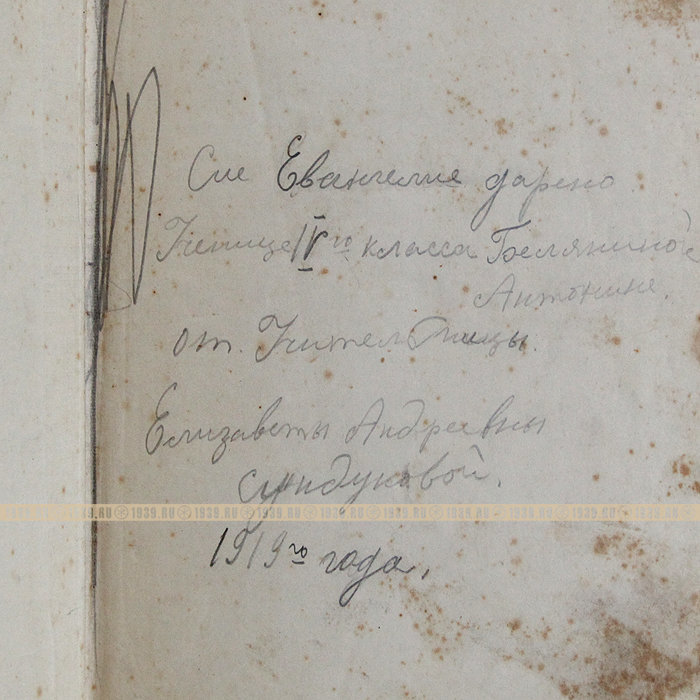 Сие Евангелие дарено
Ученице IV го класса Беляниной
Антонине.
от Учительницы
Елизаветы Андреевны
Сундуковой.
1939.RU 1939.RU 1939.RU 1939.RU 1939.RU 1939.RU 1939.RU
1919 го года.